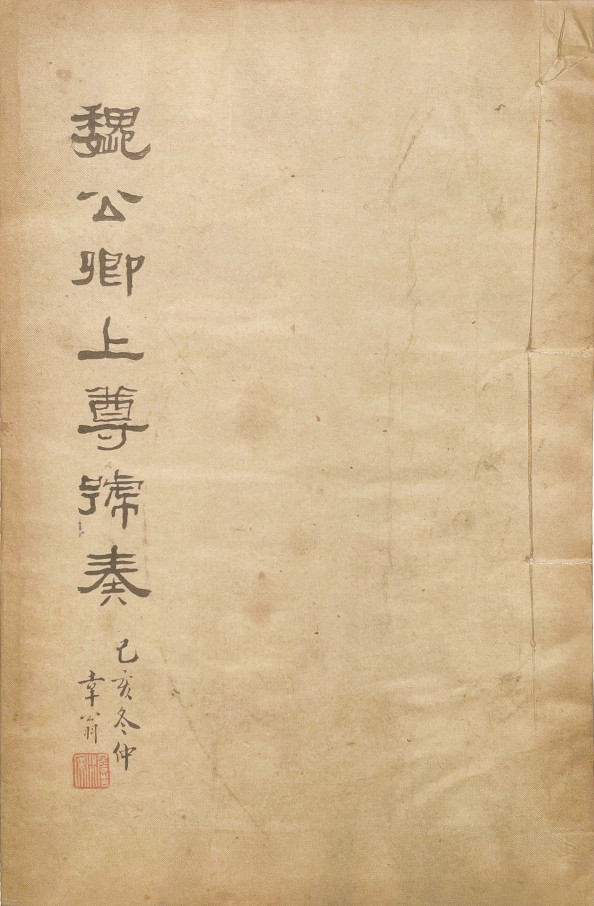 魏公卿上尊號奏
己亥冬仲
韋翁